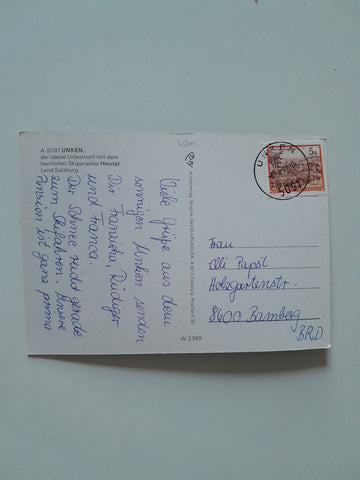 A-5091 UNKEN,
der ideale Urlaubsort mit dem
herrlichen Skiparadies Heutal
Land Salzburg
Viele Grüße aus dem
sonnigen Unken senden
Dir Franziska, Rüdiger
und Franca.
Der Schnee reicht gerade
zum Skifahren. Unsere
Pension ist ganz prima
W 2389
UNKEN
5091
5 S
Frau
Olli Papst
Holzgartenstr.
8600 Bamberg
BRD